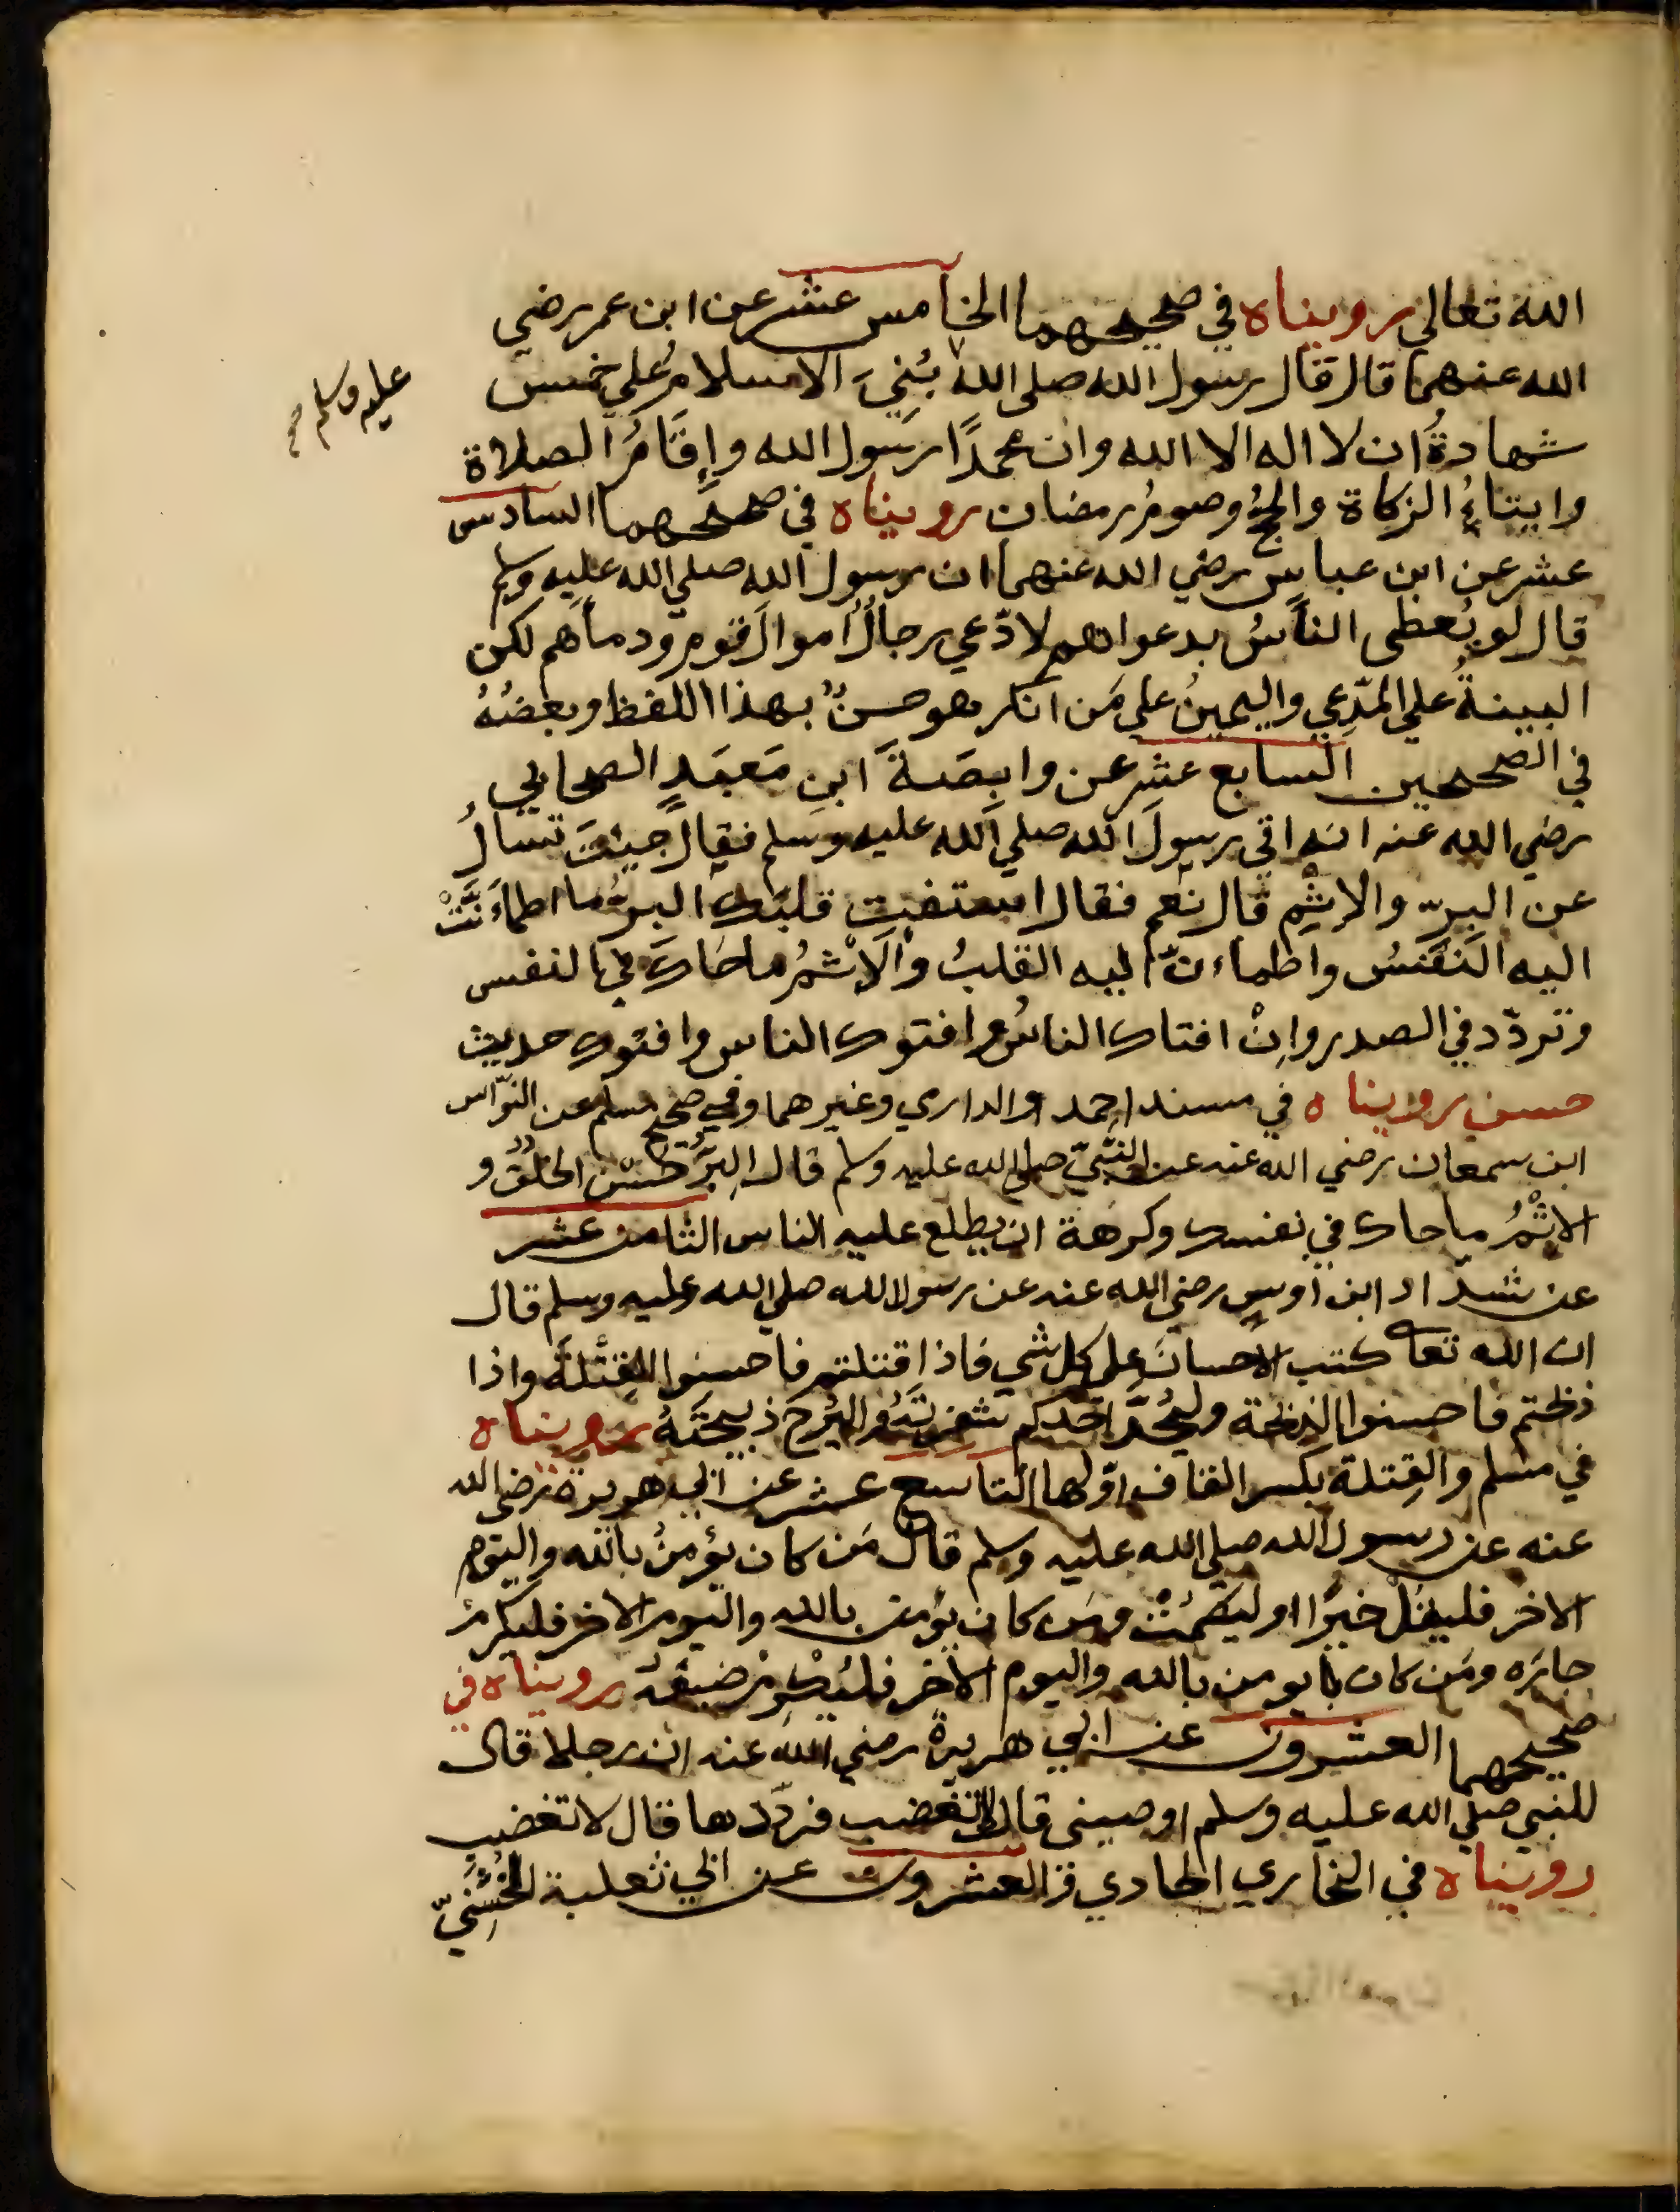 الله تعالى رويناه في صحيحهما الخامس عشر عن ابن عمر رضي
الله عنهما قال قال رسول الله صلى الله بُنِيَ الاسلامُ على خمس
عليه وسلم صح
شهادةُ ان لا اله الا الله وان محمدًا رسول الله وإِقَامُ الصلاة
وايتاءُ الزكاة والحجُ وصومُ رمضان رويناه في صحيحهما السادس
عشر عن ابن عباس رضي الله عنهما ان رسول الله صلي الله عليه وسلم
قال لو يُعطى الناسُ بدعواهم لادّعي رجالٌ اموالَ قوم ودماهم لكن
البينةُ علي المدّعِي واليمينُ على مَن انكر هو حسنٌ بهذا اللفظ وبعضُهُ
في الصحيحين السابع عشر عن وابِصَةَ ابنِ مَعبَدٍ الصحابي
رضي الله عنه انه اتي رسولَ الله صلي الله عليه وسلم فقال جيتَ تسالُ
عن البِرّ والاِثْمِ قال نعم فقال استفتِ قلبَك البرُ ما اطمأَنَّتْ
اليه النَفْسُ واطماءنّ اليه القلبُ والاِثْمُ ما حَاكَ في النفس
وتردّد في الصدر واِنْ افتاك الناسُ وافتوك الناس وافتوك حديث
حسن رويناه في مسند احمد والدارمي وغيرهما وفي صحيح مسلم عن النوّاس
ابن سمعان رضي الله عنه عن النَّبيّ صلى الله عليه وسلم قال البِرُّ حُسْن الخلُق و
الاِثْمُ ما حاك في نفسك وكرهة ان يطلع عليه الناس الثامن عشر
عن شدّاد ابن اوسٍ رضي الله عنه عن رسول الله صلي الله عليه وسلم قال
ان الله تعا كتب الاحسانَ على كل شي فاذا قتلتم فاحسنوا القِتْلَةَ واذا
ذبحتم فاحسنوا الذبحة وليُحِدَّ احدكم شفرتَهُ واليُرِحْ ذبيحَتَهُ رويناه
في مسلم والقِتلة بكسر القاف اوّلها التاسع عشر عن ابي هريرة رضي الله
عنه عن رسول الله صلي الله عليه وسلم قال مَن كان يؤمنُ بالله واليوم
الاخر فليقُلْ خيرًا او ليصْمُتْ ومَن كان يؤمن بالله واليوم الاخر فليكرمْ
جارَه ومَن كان يومن بالله واليوم الاخر فليُكْرِمْ ضيفَهُ رويناه في
صحيحهما العشرون عن ابي هريرة رضي الله عنه ان رجلا قال
للنبي صلي الله عليه وسلم اوصيني قال لا تغضب فردّدها قال لا تغضب
رويناه في البخاري الحادي والعشرون عن ابي ثعلبة الخُشَنِيّ